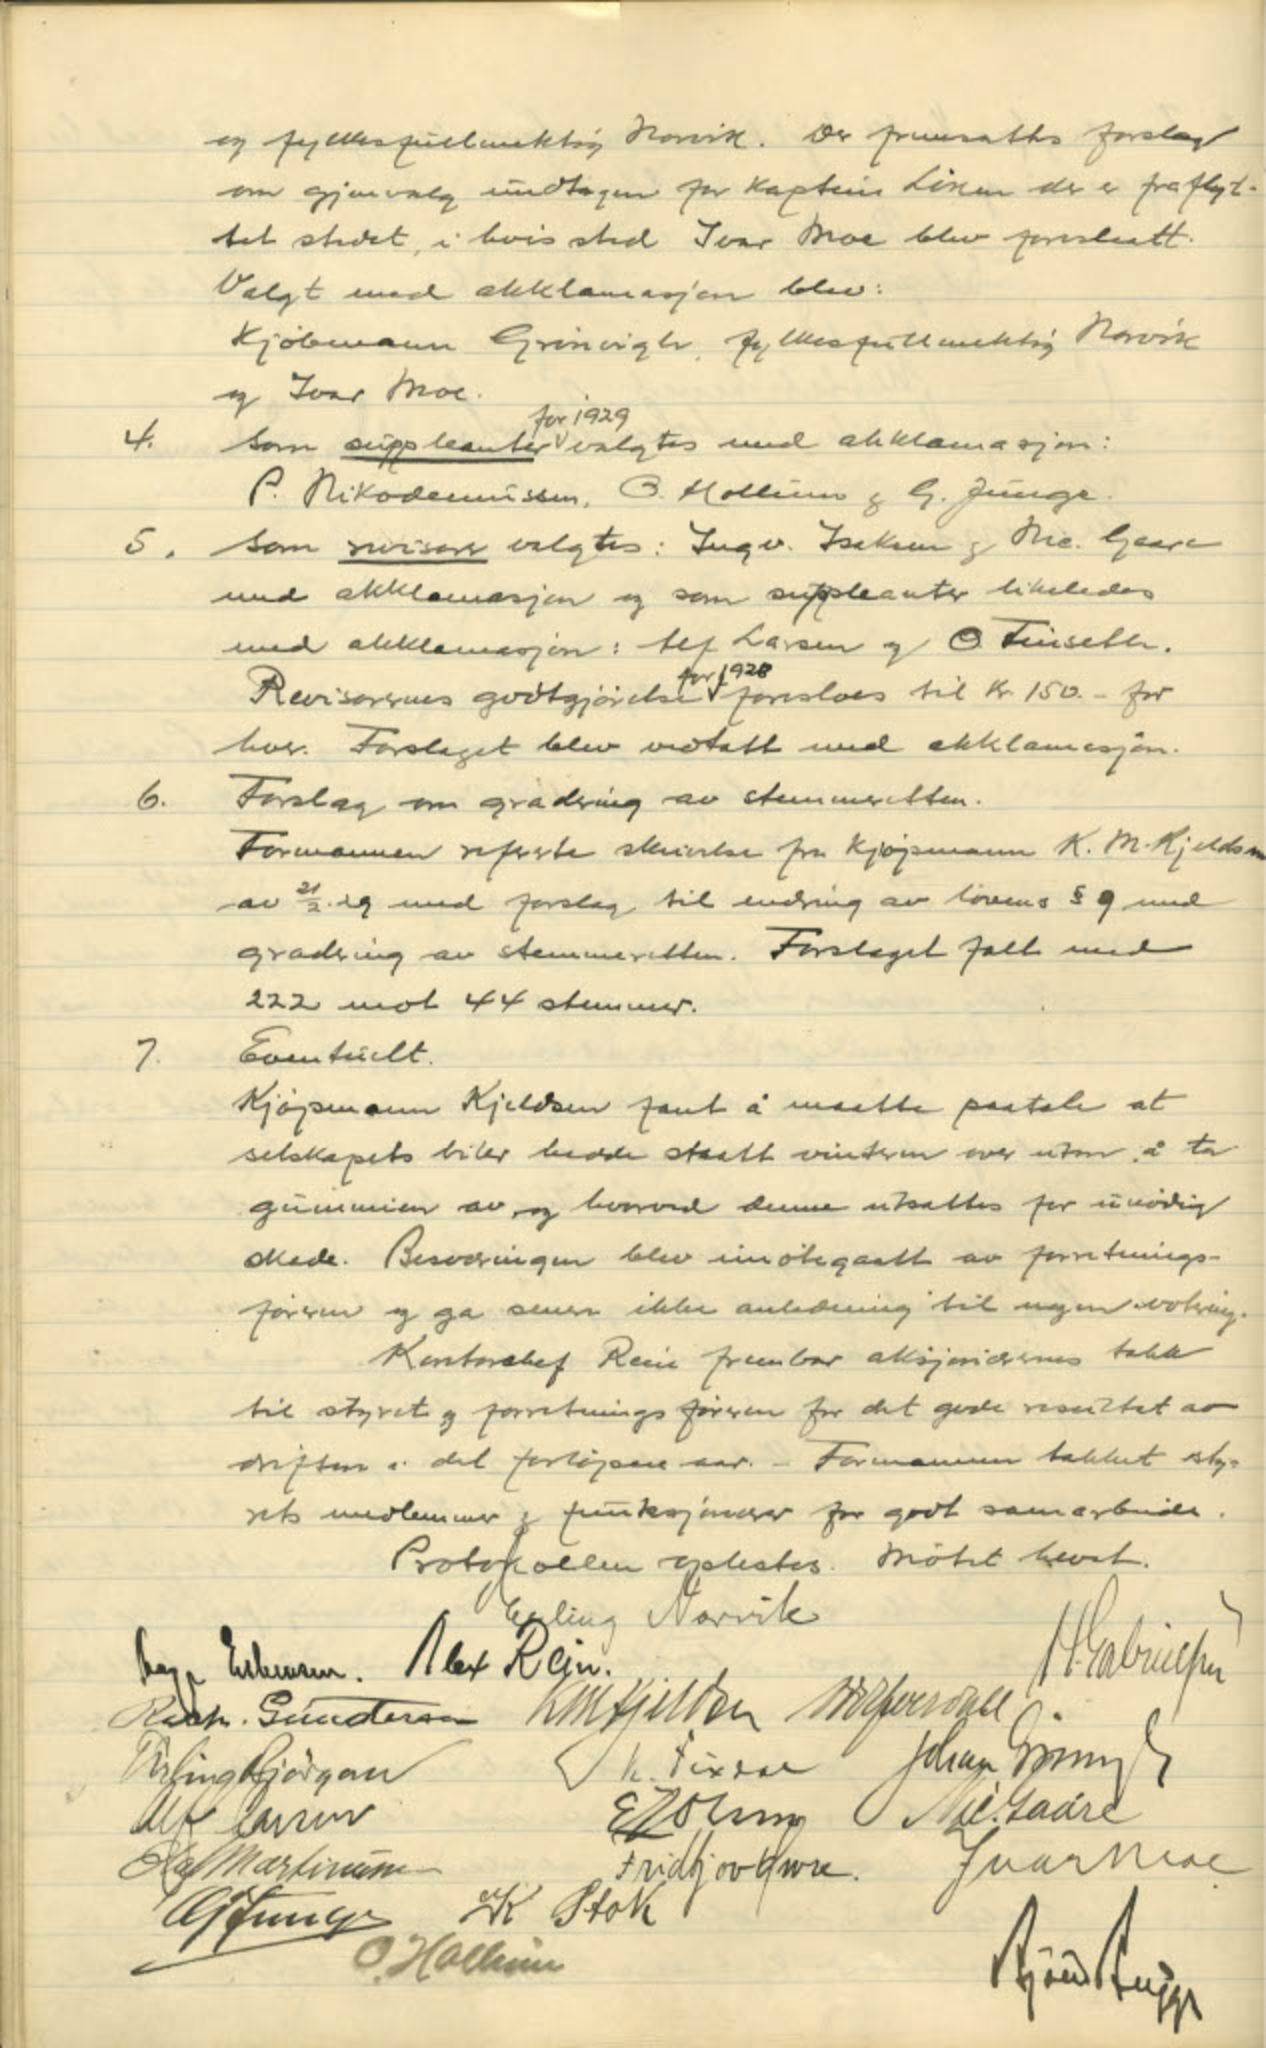 og fylkesfullmektig Norvik. Der fremsattes forslag
om gjenvalg undtagen for Kaptein Liken der er fraflyt-
tet stedet, i hvis sted Ivar Moe blev foreslaatt.
Valgt med akklamasjon blev:
Kjöbmann Grönvigh, fylkesfullmektig Norvik
og Ivar Moe.
for 1929
4. Som suppleanter valgtes med akklamasjon:
P. Nikodemussen, O. Hollum og G. Junge.
5. Som revisorer valgtes: Ingv. Isaksen og Nic. Gaare
med akklamasjon og som suppleanter likeledes
med akklamasjon: Alf Larsen og O Finseth.
for 1928
Revisorernes godtgjörelse foresloes til Kr. 150.- for
hver. Forslaget blev vedtatt med akklamasjon.
6. Forslag om gradering av stemmeretten.
Formannen refererte skrivelse fra Kjøpmann K. M. Kjeldsen
av 21/2.29 med forslag til endring av lovens § 9 med
gradering av stemmeretten. Forslaget falt med
222 mot 44 stemmer.
7. Eventuelt.
Kjøpmann Kjeldsen fant å maatte paatale at
selskapets biler hadde staatt vinteren over uten å ta
gummien av, og hvorved denne utsattes for unödig
skade. Besværingen blev imötegaatt av forretnings-
föreren og ga senere ikke anledning til nogen votering.
Kontorchef Rein frembar aksjonærernes takk
til styret og forretningsföreren for det gode resultat av
driften i det forløpne aar. - Formannen takket sty-
rets medlemmer og funksjonærer for godt samarbeide.
Protokollen oplestes. Mötet hevet.
Erling Norvik
Esbensen. Alex Rein. H. Gabrielsen
Gundersen KM Kjeldsen
Erling Bjørgan K. Johan
Alf Larsen Nic. Gaare
Martinussen Fridtjov Ivar Moe
G Junge K Stok
O. Hollum